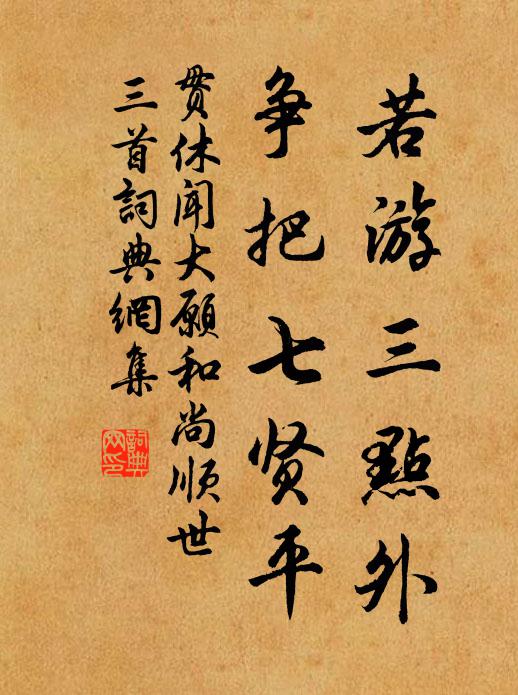 若游三點外
争把七贤平
贯休闻大愿和尚顺世
三首詞典網集
詞典
网印